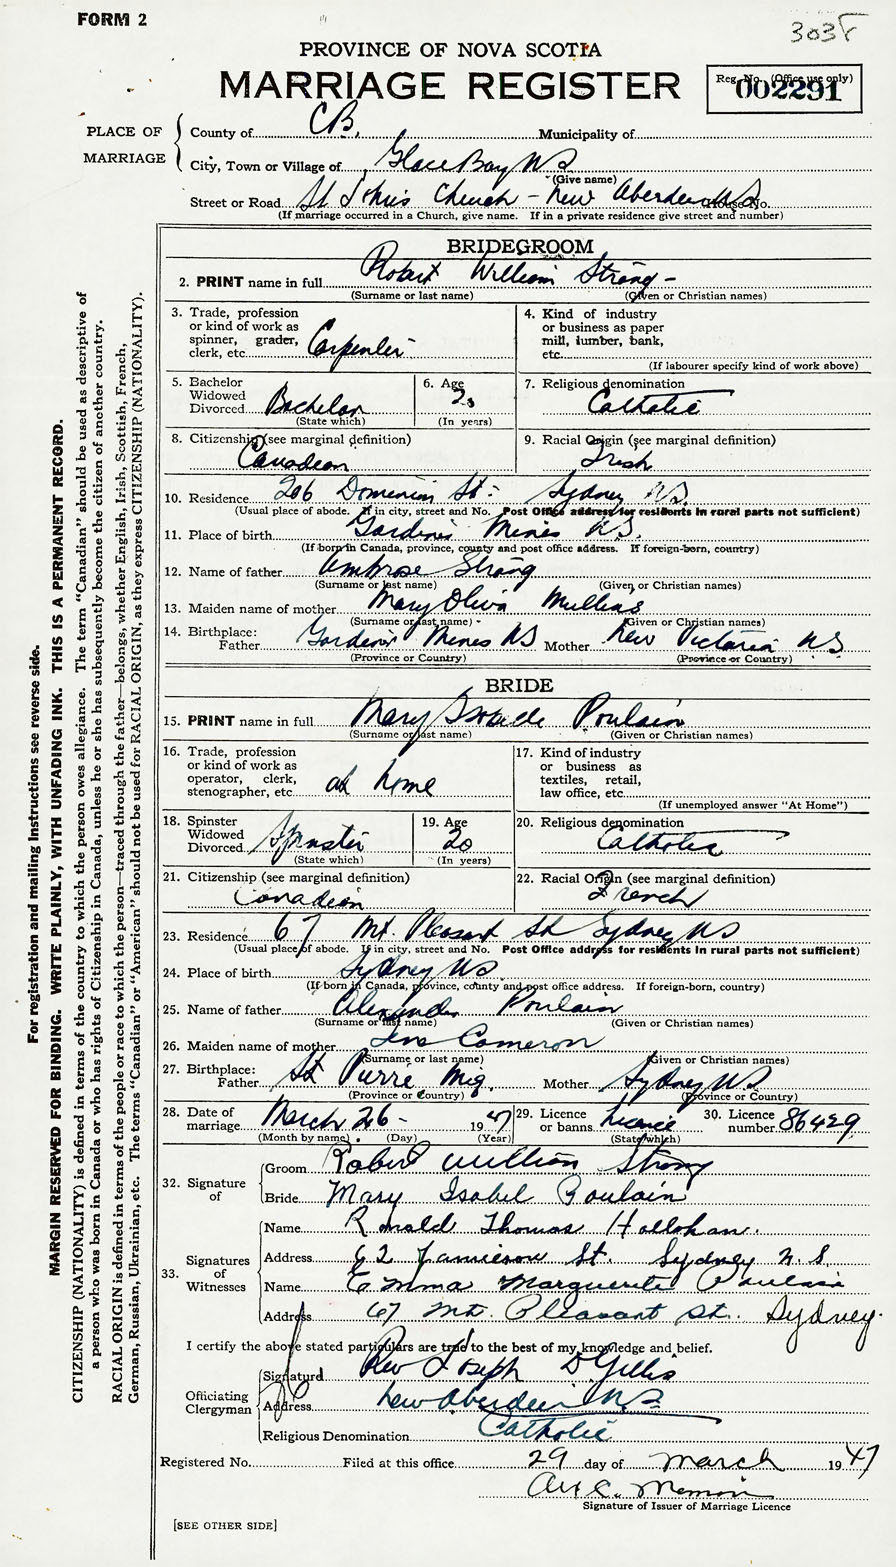 FORM 2
303F
PROVINCE OF NOVA SCOTIA
MARRIAGE REGISTER
Reg. No. (Office use only)
002291
PLACE OF MARRIAGE
County of C.B. Municipality of
City, Town or Village of Glace Bay NS
(Give name)
Street or Road St John's Church - New Aberdeen NS House No.
(If marriage occurred in a Church, give name. If in a private residence give street and number)
BRIDEGROOM
2. PRINT name in full Robert William Strong -
(Surname or last name) (Given or Christian names)
3. Trade, profession or kind of work as spinner, grader, clerk, etc. Carpenter
4. Kind of industry or business as paper mill, lumber, bank, etc.
(If labourer specify kind of work above)
5. Bachelor Widowed Divorced Bachelor
(State which)
6. Age
(In years)
7. Religious denomination Catholic
8. Citizenship (see marginal definition) Canadian
9. Racial Origin (see marginal definition) Irish
10. Residence 206 Dominion St. Sydney NS
(Usual place of abode. If in city, street and No. Post Office address for residents in rural parts not sufficient)
11. Place of birth Gardiner Mines N.S.
(If born in Canada, province, county and post office address. If foreign-born, country)
12. Name of father Ambrose Strong
(Surname or last name) (Given or Christian names)
13. Maiden name of mother Mary Oliva Mullins
(Surname or last name) (Given or Christian names)
14. Birthplace: Father Gardiner Mines NS Mother New Victoria N.S.
(Province or Country) (Province or Country)
BRIDE
15. PRINT name in full Mary Poulain
(Surname or last name) (Given or Christian names)
16. Trade, profession or kind of work as operator, clerk, stenographer, etc. at home
17. Kind of industry or business as textiles, retail, law office, etc.
(If unemployed answer "At Home")
18. Spinster Widowed Divorced Spinster
(State which)
19. Age 20
(In years)
20. Religious denomination Catholic
21. Citizenship (see marginal definition) Canadian
22. Racial Origin (see marginal definition) French
23. Residence 67 Mt. Pleasant St Sydney NS
(Usual place of abode. If in city, street and No. Post Office address for residents in rural parts not sufficient)
24. Place of birth Sydney NS.
(If born in Canada, province, county and post office address. If foreign-born, country)
25. Name of father Alexander Poulain
(Surname or last name) (Given or Christian names)
26. Maiden name of mother Cameron
(Surname or last name) (Given or Christian names)
27. Birthplace: Father St Pierre Miq. Mother Sydney NS
(Province or Country) (Province or Country)
28. Date of marriage March 26 - 1947
(Month by name) (Day) (Year)
29. Licence or banns Licence
(State which)
30. Licence number 86429
32. Signature of
Groom Robert William Strong
Bride Mary Isabel Poulain
33. Signatures of Witnesses
Name Ronald Thomas Hollohan.
Address 62 Jamieson St. Sydney N.S
Name Emma Marguerite Poulain
Address 67 Mt. Pleasant St. Sydney.
I certify the above stated particulars are true to the best of my knowledge and belief.
Officiating Clergyman
Signature Rev Joseph D Gillis
Address New Aberdeen N.S
Religious Denomination Catholic
Registered No. Filed at this office 29 day of March 1947
Signature of Issuer of Marriage Licence
[SEE OTHER SIDE]
For registration and mailing instructions see reverse side.
MARGIN RESERVED FOR BINDING. WRITE PLAINLY, WITH UNFADING INK. THIS IS A PERMANENT RECORD.
CITIZENSHIP (NATIONALITY) is defined in terms of the country to which the person owes allegiance. The term "Canadian" should be used as descriptive of
a person who was born in Canada or who has rights of Citizenship in Canada, unless he or she has subsequently become the citizen of another country.
RACIAL ORIGIN is defined in terms of the people or race to which the person—traced through the father—belongs, whether English, Irish, Scottish, French,
German, Russian, Ukrainian, etc. The terms "Canadian" or "American" should not be used for RACIAL ORIGIN, as they express CITIZENSHIP (NATIONALITY).